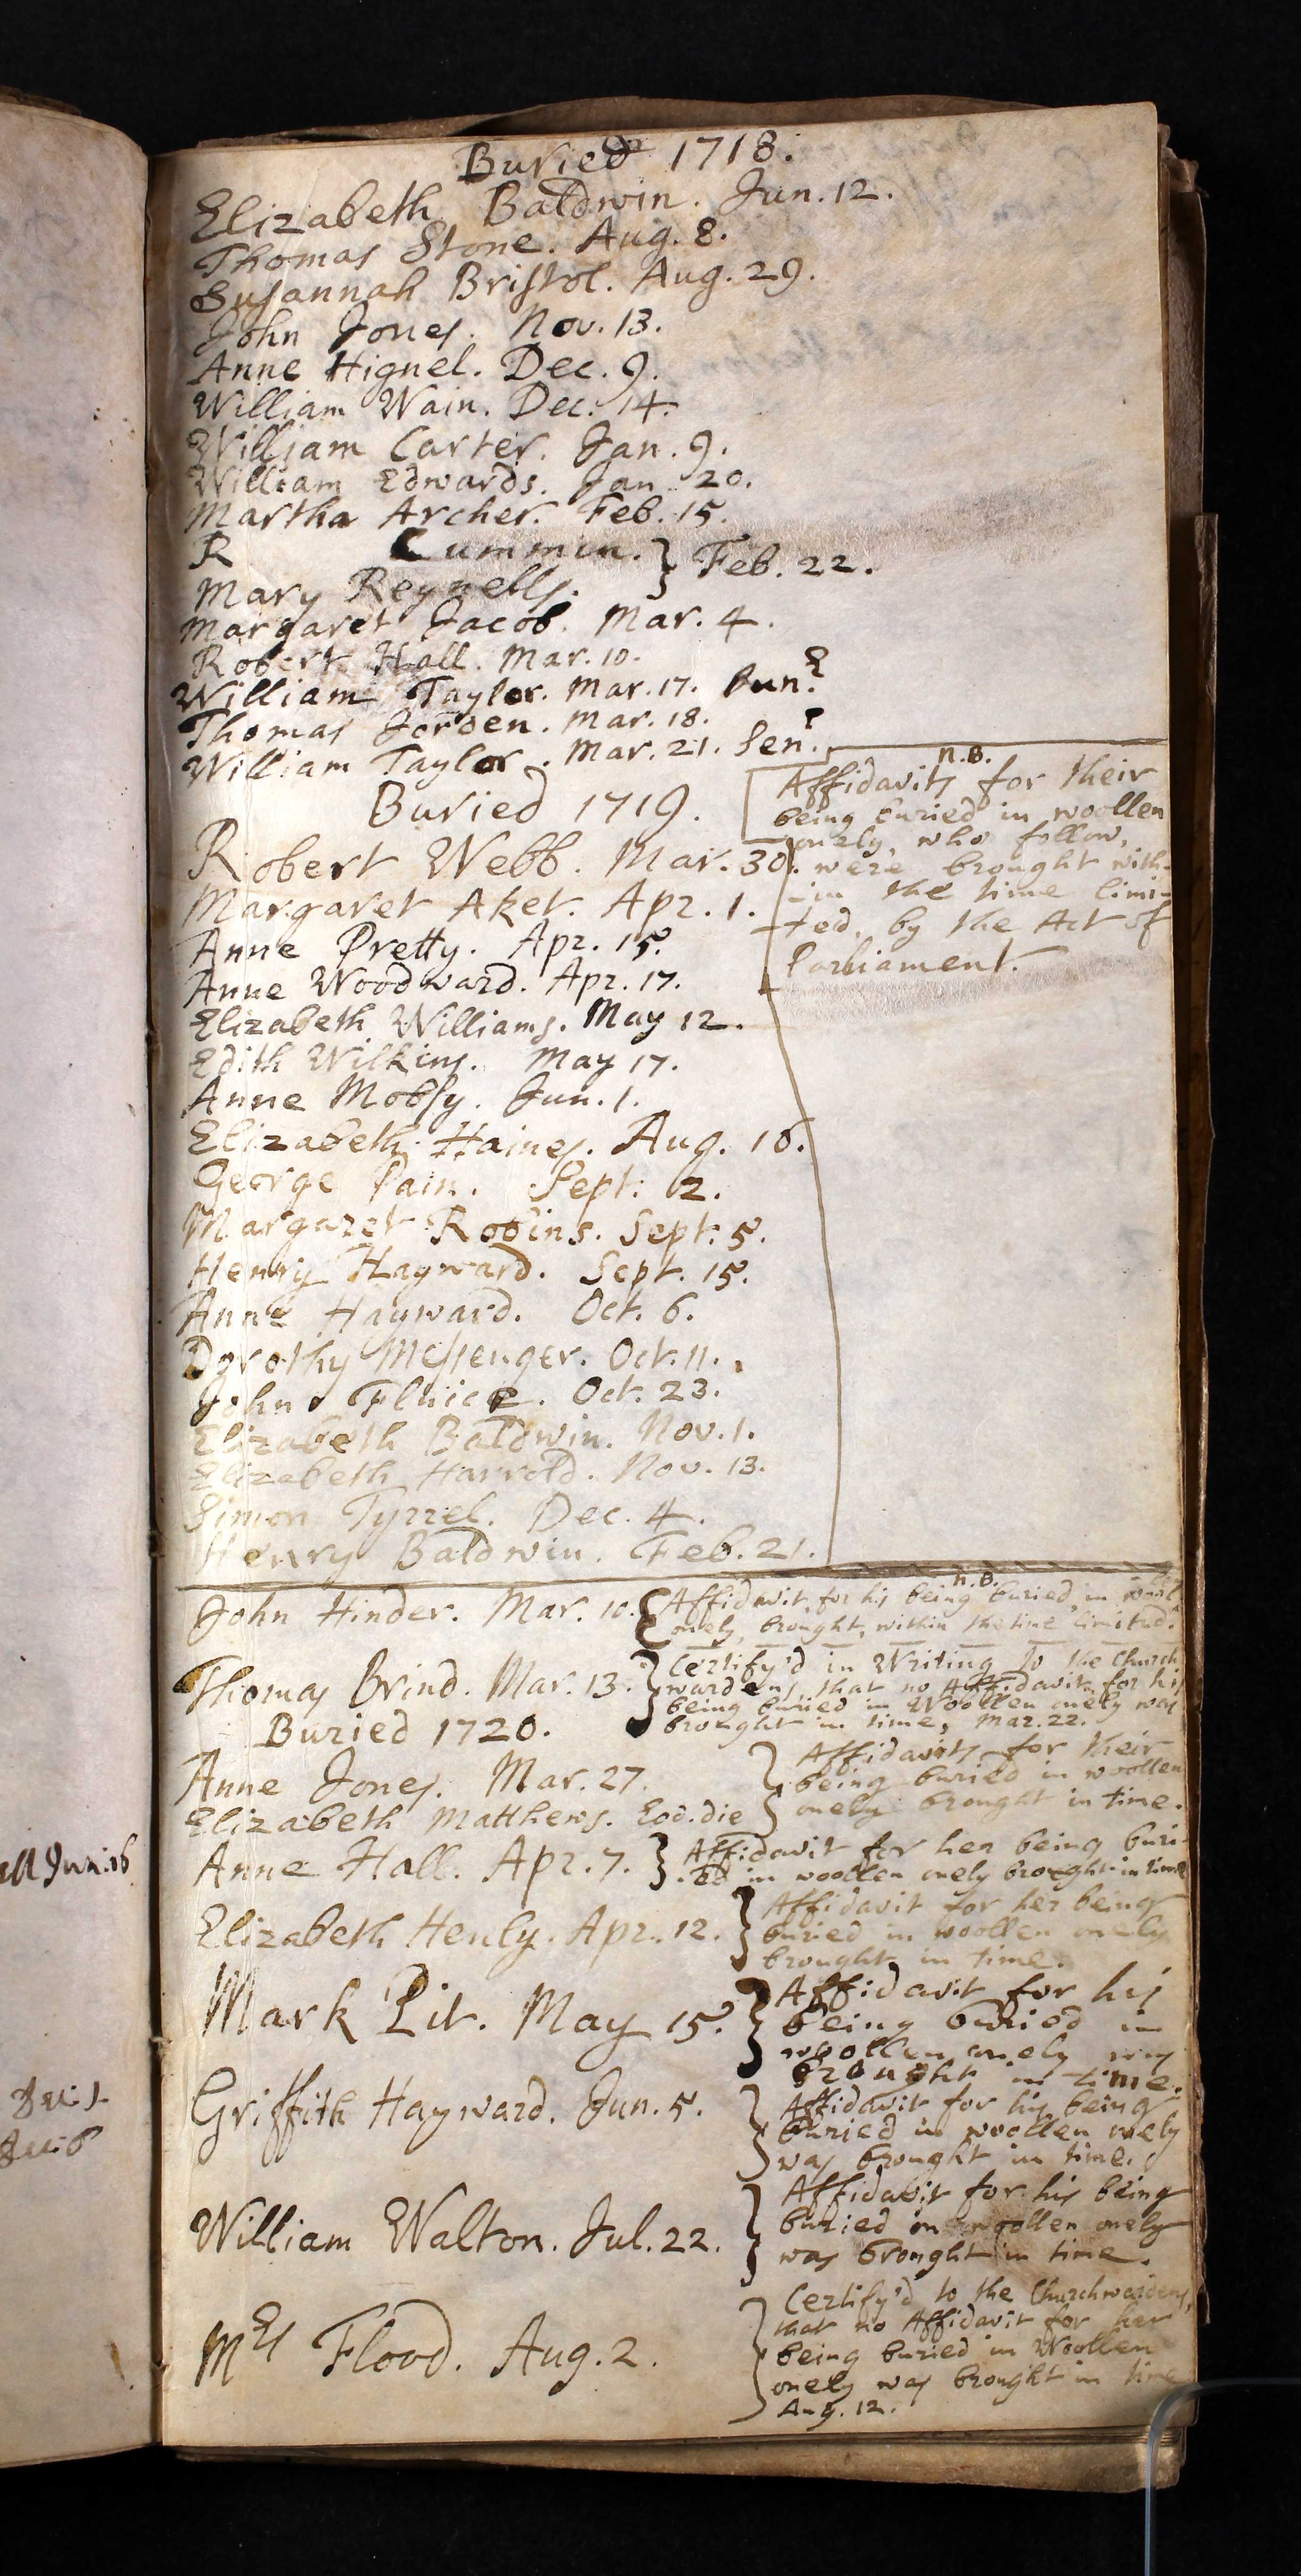 Buried 1718.
Elizabeth Baldwin. Jun. 12.
Thomas Stone. Aug. 8.
Susannah Bristol. Aug. 29.
John Jones. Nov. 13.
Anne Hignel. Dec. 9.
William Wain. Dec. 14.
William Carter. Jan. 9.
William Edwards. Jan. 20.
Martha Archer. Feb. 15.
R Cummin. } Feb. 22.
Mary Reynells.
Margaret Jacob. Mar. 4.
Robert Hall. Mar. 10.
William Taylor. Mar. 17. Jun.
Thomas Jorden. Mar. 18.
William Taylor. Mar. 21. Sen.
Buried 1719.
n.B.
Affidavits for their
being buried in woollen
onely, who follow,
were brought with-
-in the time limi-
-ted, by the Act of
Parliament.
Robert Webb. Mar. 30.
Margaret Aket. Apr. 1.
Anne Pretty. Apr. 15.
Anne Woodward. Apr. 17.
Elizabeth Williams. May 12.
Edith Wilkins. May 17.
Anne Mobsy. Jun. 1.
Elizabeth Haines. Aug. 16.
George Pain. Sept. 2.
Margaret Robins. Sept. 5.
Henry Hayward. Sept. 15.
Anne Hayward. Oct. 6.
Dorothy Messenger. Oct. 11.
John Fluice. Oct. 23.
Elizabeth Baldwin. Nov. 1.
Elizabeth Harrold. Nov. 13.
Simon Tyrrel. Dec. 4.
Henry Baldwin. Feb. 21.
n.B.
John Hinder. Mar. 10. { Affidavit, for his being buried, in
onely, brought, within the time limited.
Thomas Brind. Mar. 13. } Certify'd in Writing to the Church
wardens, that no Affidavit for his
being buried in Woollen onely was
brought in time, Mar. 22.
Buried 1720.
Anne Jones. Mar. 27. } Affidavits for their
being buried in woollen
Elizabeth Matthews. Eod. die } onely brought in time.
Anne Hall. Apr. 7. } Affidavit for her being buri-
-ed in woollen onely brought in time
Elizabeth Henly. Apr. 12. } Affidavit for her being
buried in woollen onely
brought in time.
Mark Pit. May 15. } Affidavit for his
being buried in
woollen onely was
brought in time.
Griffith Hayward. Jun. 5. } Affidavit for his being
buried in woollen onely
was brought in time.
William Walton. Jul. 22. } Affidavit for his being
buried in woollen onely
was brought in time.
Mrs Flood. Aug. 2. } Certify'd to the Churchwardens,
that no Affidavit for her
being buried in Woollen
onely was brought in time
Aug. 12.